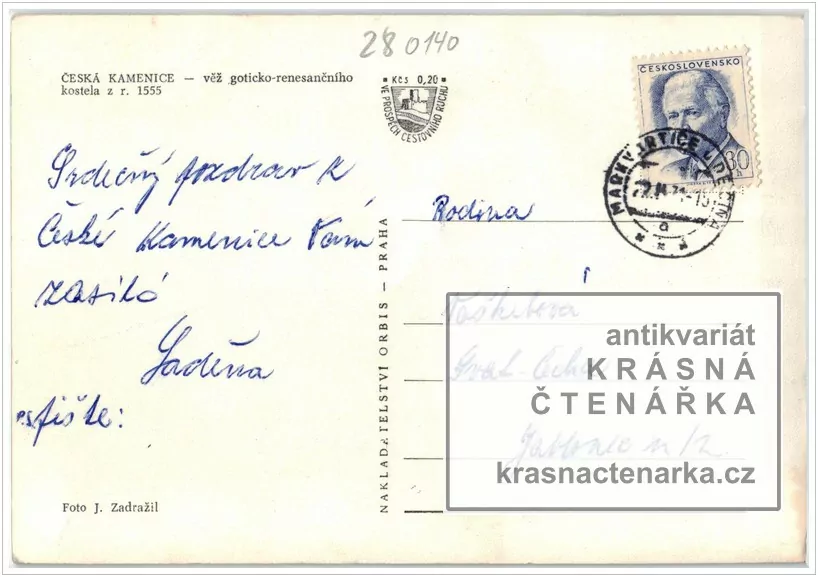 28 0140
ČESKÁ KAMENICE — věž goticko-renesančního
kostela z r. 1555
Kčs 0,20
VE PROSPĚCH CESTOVNÍHO RUCHU
ČESKOSLOVENSKO
30
MARKVARTICE U DĚČÍNA
Srdečný pozdrav z
České Kamenice Vám
zasílá
pište:
NAKLADATELSTVÍ ORBIS — PRAHA
Rodina
Jablonec n/
antikvariát
KRÁSNÁ
ČTENÁŘKA
krasnactenarka.cz
Foto J. Zadražil